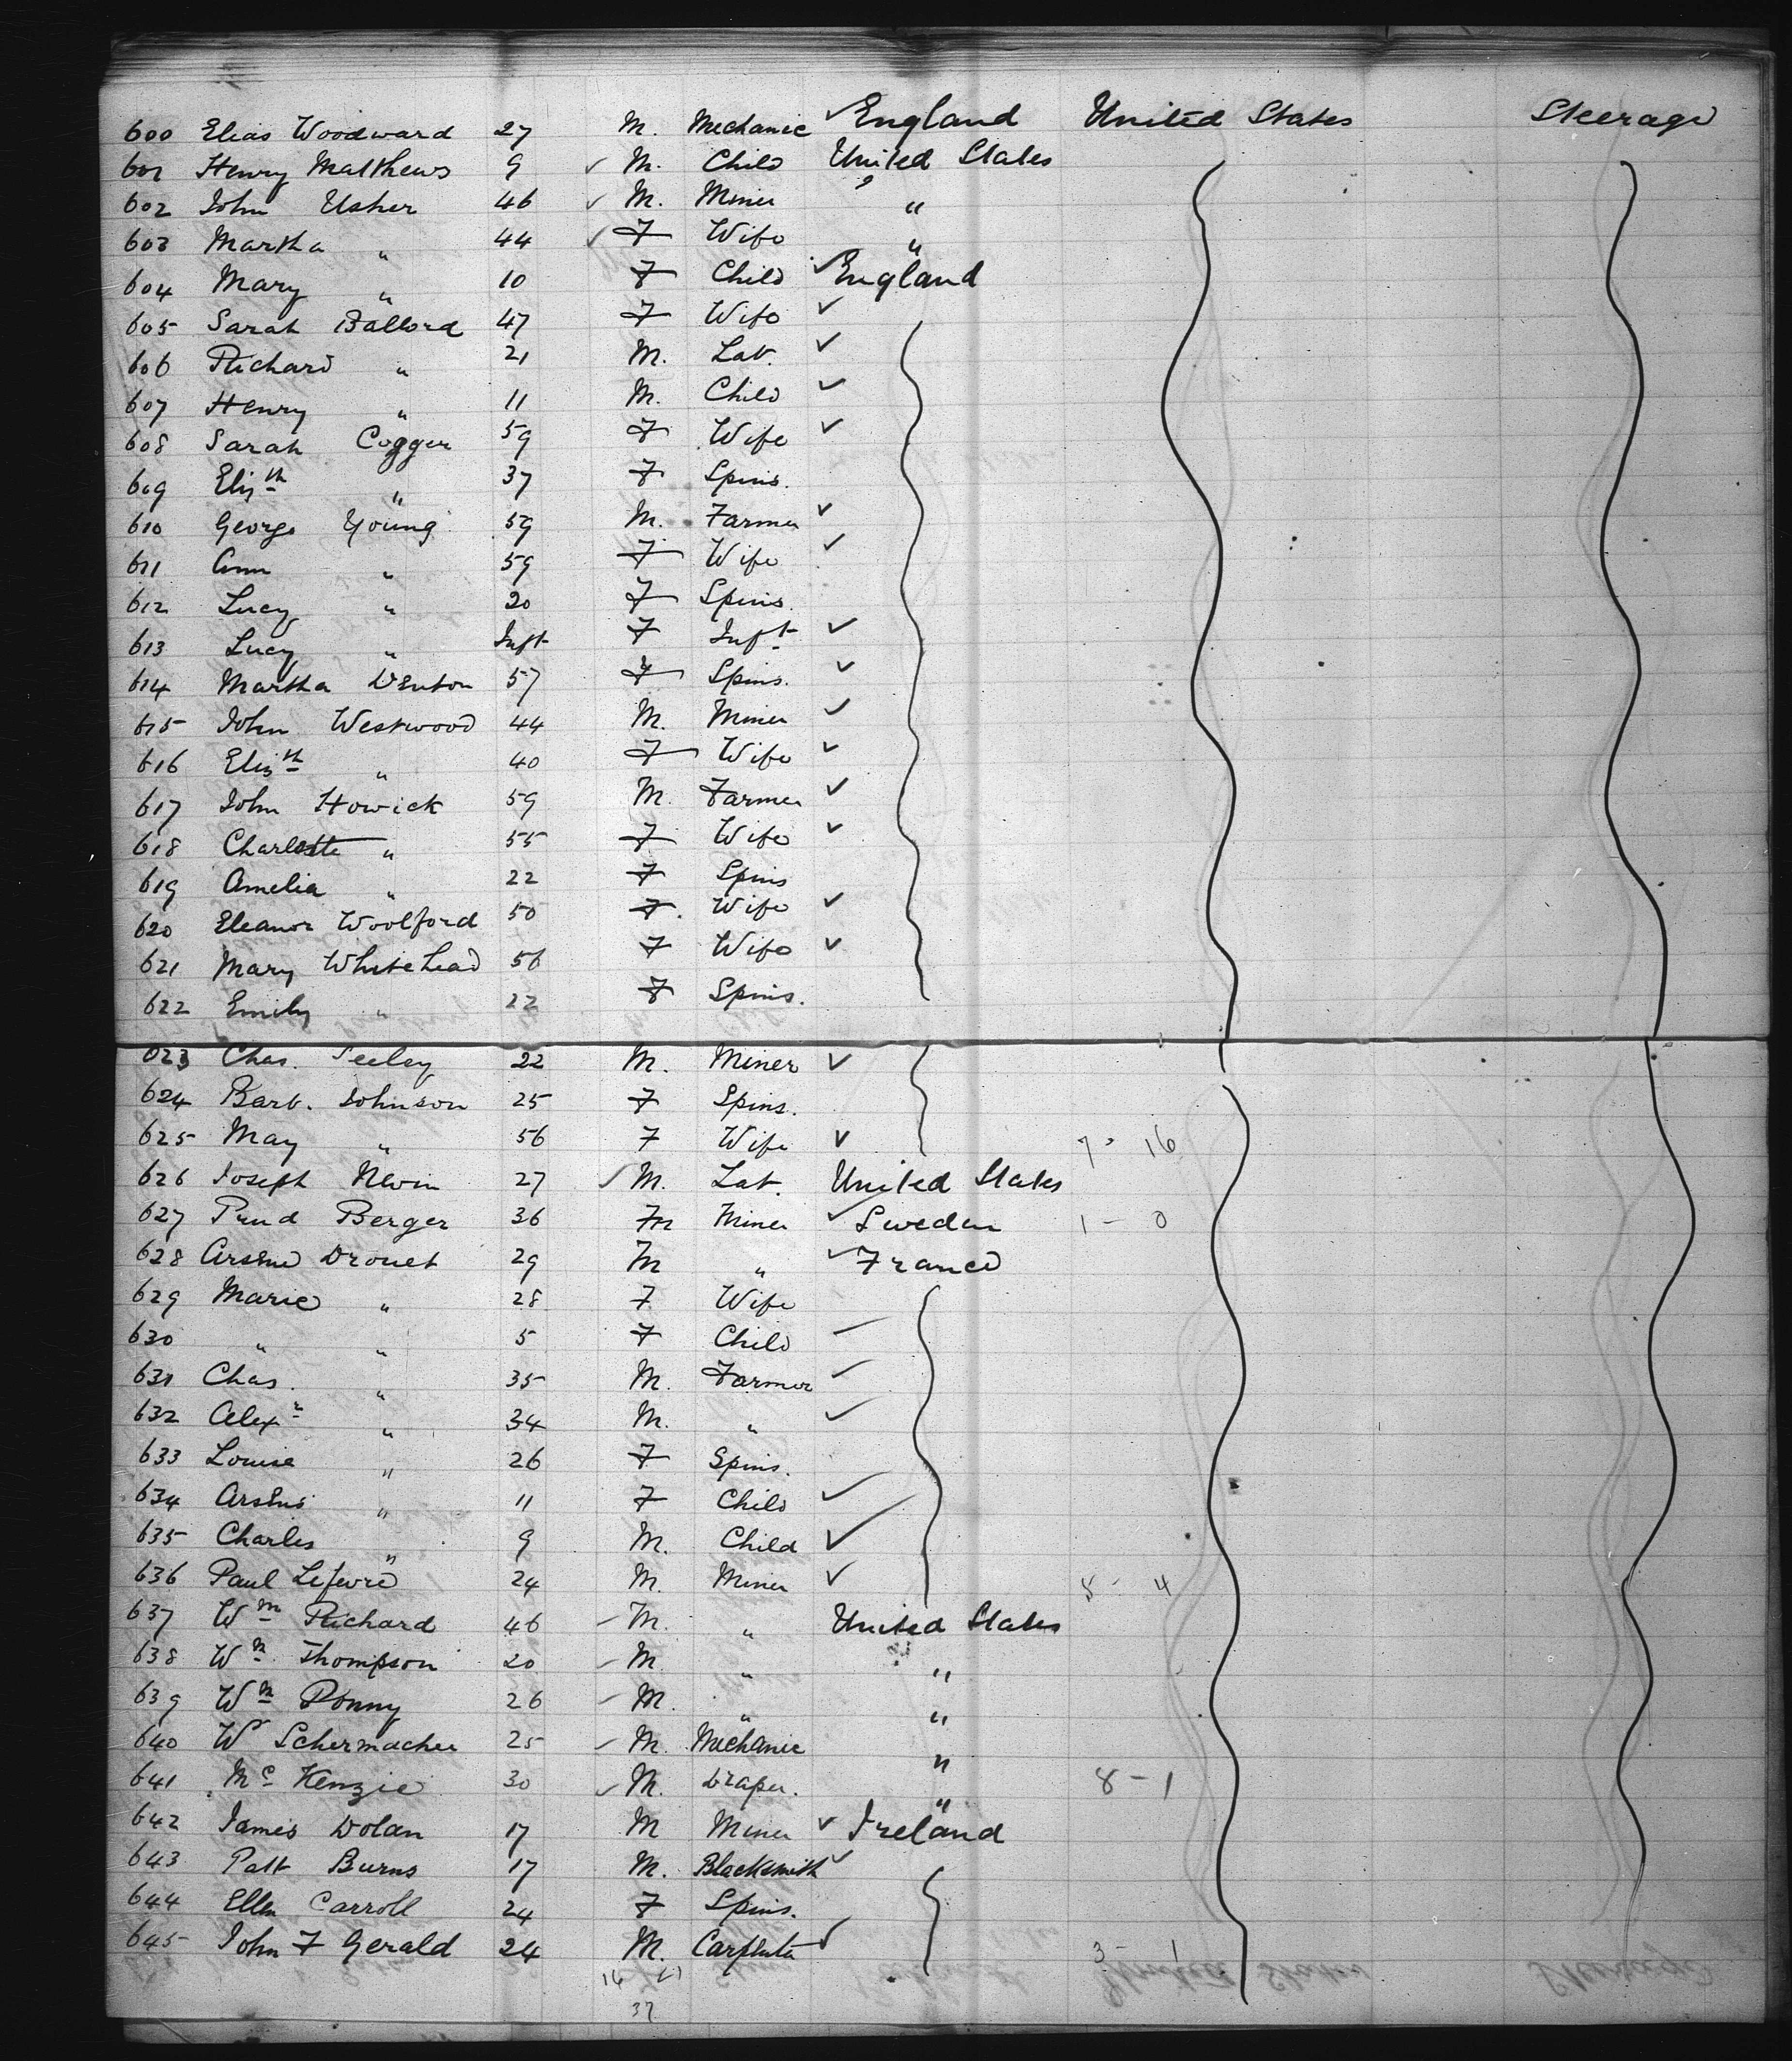 600 Elias Woodward 27 M. Mechanic England United States Steerage
601 Henry Matthews 9 M. Child United States
602 John Usher 46 M. Miner "
603 Martha " 44 F Wife "
604 Mary " 10 F Child England
605 Sarah Ballord 47 F Wife
606 Richard " 21 M. Lab.
607 Henry " 11 M. Child
608 Sarah Cogger 59 F Wife
609 Elizth " 37 F Spins.
610 George Young 59 M. Farmer
611 Ann " 59 F Wife
612 Lucy " 20 F Spins.
613 Lucy " Inft F Inft
614 Martha Denton 57 F Spins.
615 John Westwood 44 M. Miner
616 Elizth " 40 F Wife
617 John Howick 59 M. Farmer
618 Charlotte " 55 F Wife
619 Amelia " 22 F Spins
620 Eleanor Woolford 50 F. Wife
621 Mary Whitehead 56 F Wife
622 Emily " 22 F Spins.
623 Chas. Seeley 22 M. Miner
624 Barb. Johnson 25 F Spins.
625 May " 56 F Wife 7 - 16
626 Joseph 27 M. Lab. United States
627 Berger 36 M Miner Sweden 1 - 0
628 Arsène Drouet 29 M " France
629 Marie " 28 F Wife
630 " " 5 F Child
631 Chas. " 35 M. Farmer
632 Alexr " 34 M. "
633 Louise " 26 F Spins.
634 " 11 F Child
635 Charles " 9 M. Child
636 Paul Lefevre 24 M. Miner 5 - 4
637 Wm Richard 46 M. " United States
638 Wm Thompson 20 M " "
639 Wm 26 M. " "
640 W Schermacher 25 M. Mechanic "
641 Mc Kenzie 30 M. Draper. " 8 - 1
642 James Dolan 17 M Miner Ireland
643 Patt Burns 17 M. Blacksmith
644 Ellen Carroll 24 F Spins.
645 John F Gerald 24 M. Carpenter 3 - 1
37